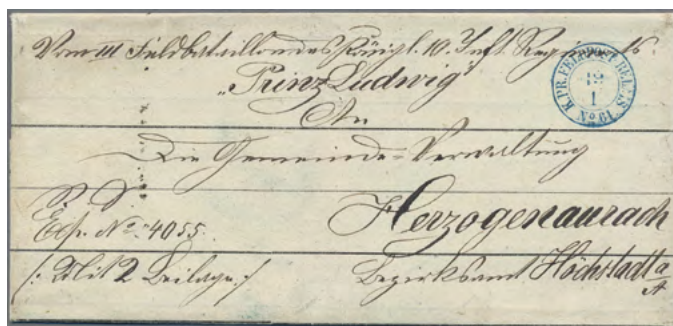 Vom III Feldbataillon des Königl. 10. Inft. Regiments
„Prinz Ludwig“
An
Die Gemeinde=Verwaltung
Herzogenaurach
Bezirksamt Höchstadt a/A
Exp. No. 4055.
/: Mit 2 Beilagen :/
K.PR.FELDPOST RELAIS
12
1
No 61.